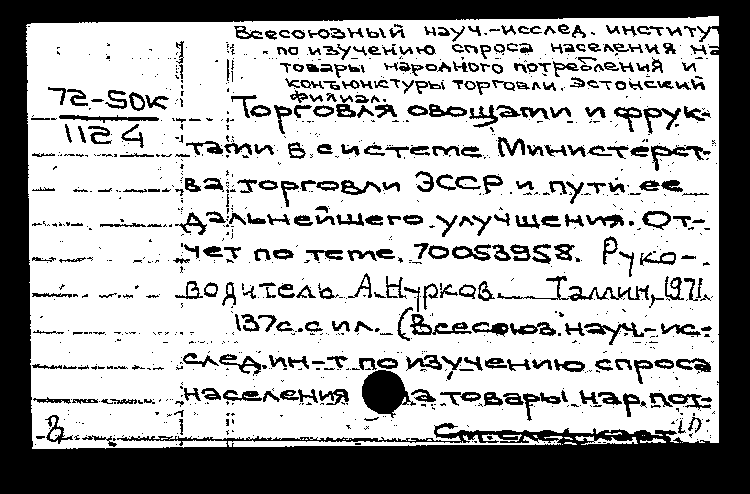 Всесоюзный науч.-исслед. институт
по изучению спроса населения на
товары народного потребления и
конъюнктуры торговли. Эстонский
филиал.
72-50к
1124
Торговля овощами и фрук-
тами в системе Министерст-
ва торговли ЭССР и пути ее
дальнейшего улучшения. От-
чет по теме. 70053958. Руко-
водитель А. Нурков. Таллин, 1971.
137с. с ил. (Всесоюз. науч.-ис-
след. ин-т по изучению спроса
населения на товары нар. пот-
См. след. карт.